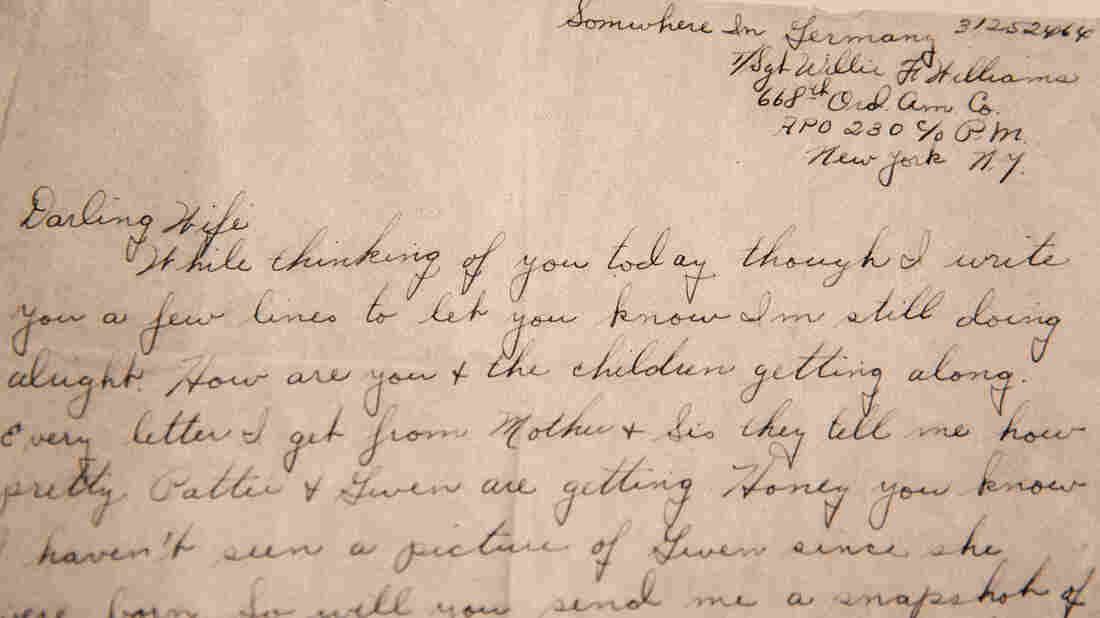 Somwhere In Germany 31252464
T/Sgt Willie F Williams
668th Ord. Am Co.
APO 230 c/o P.M.
New York N.Y.
Darling Wife
While thinking of you today though I write
you a few lines to let you know I'm still doing
alright. How are you + the children getting along.
Every letter I get from Mother + Sis they tell me how
pretty Pattie + Gwen are getting Honey you know
I haven't seen a picture of Gwen since she
were born So will you send me a snapshot of